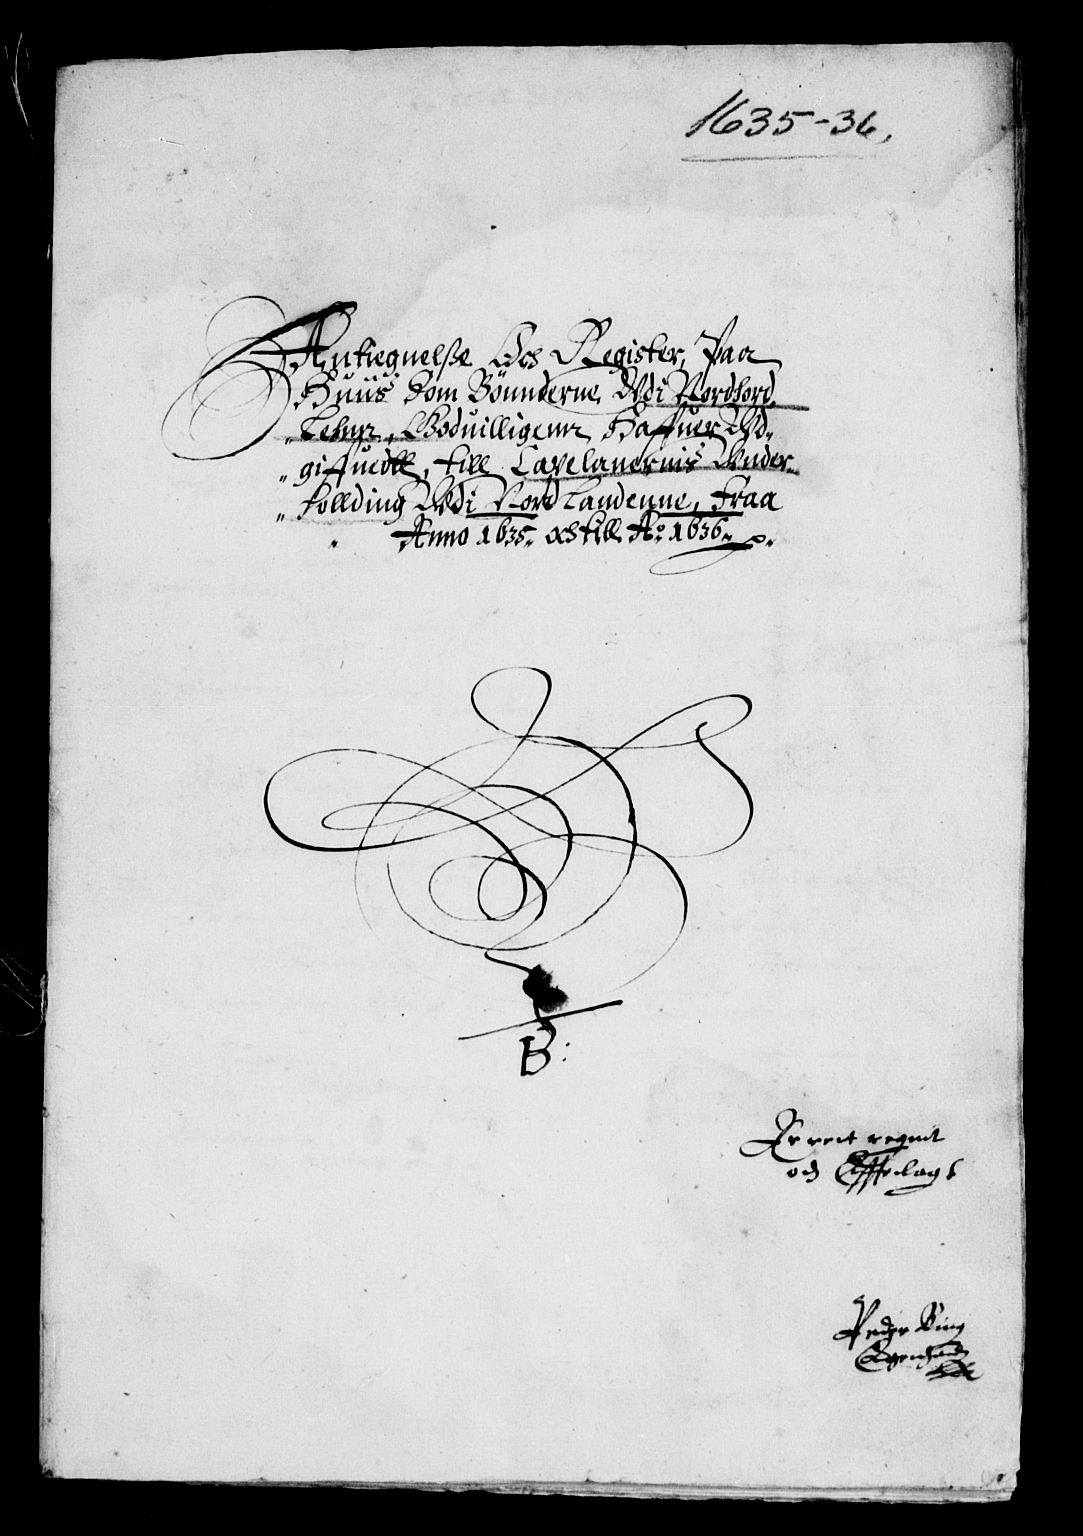 1635-36.
Antiegnelsse Och Register, Paa
Huiis Som Bönnderne Wdi Nordhord
Lehnn, Goduilligenn Haffuer Wd-
giffuedtt, till Capelanernis Wnder-
hollding Wdi Nord Landenne, Fraa
Anno 1635. och till Ao 1636.
B:
Er rett regnit
och
Peder
Egenhand